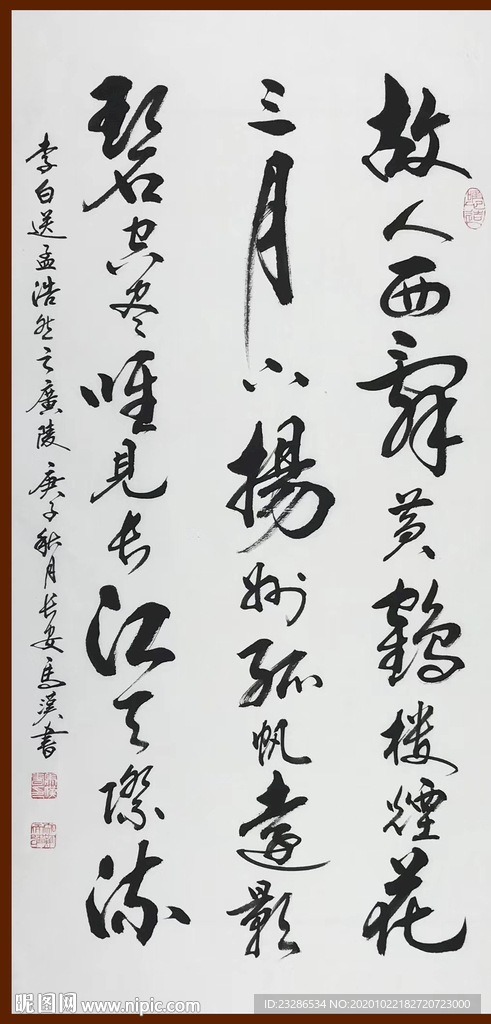 故人西辞黄鹤楼煙花
三月下揚州孤帆遠影
碧空尽唯見长江天際流
李白送孟浩然之廣陵 庚子秋月长安馬漢書
昵图网 www.nipic.com
ID:23286534 NO:20201022182720723000